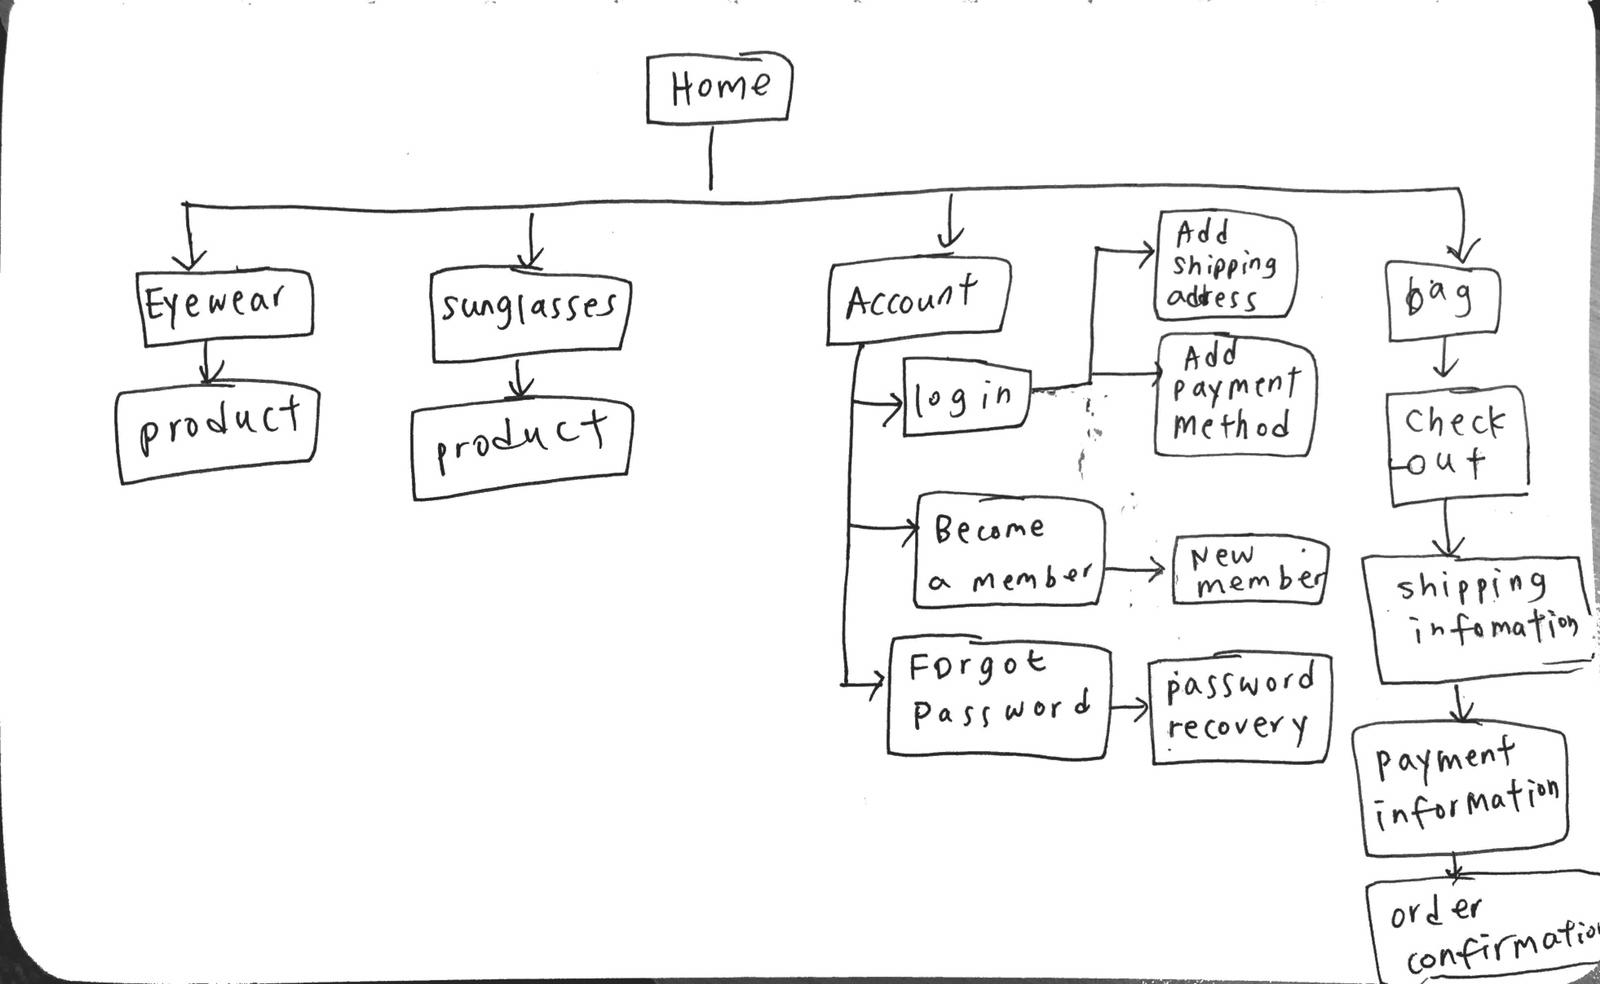 Home
Eyewear
product
sunglasses
product
Account
log in
Add
shipping
address
Add
payment
method
Become
a member
New
member
Forgot
password
password
recovery
bag
check
out
shipping
infomation
payment
information
order
confirmation